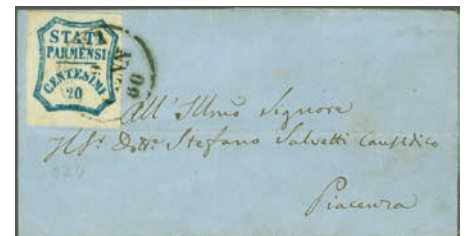 STATI
PARMENSI
CENTESIMI
20
60
All' Illmo Signore
Il Sr. Dottr. Stefano Salvetti Causidico
Piacenza